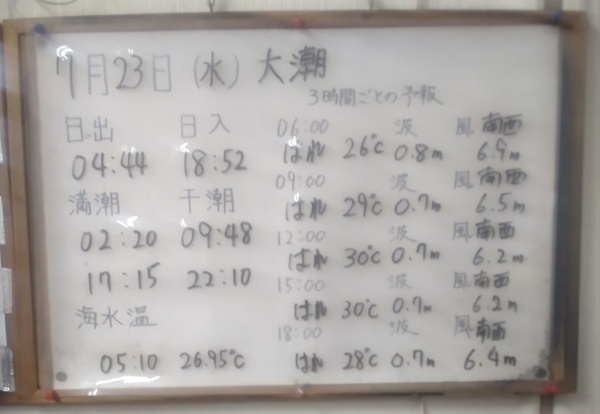 7月23日 (水) 大潮
3時間ごとの予報
日出 日入
04:44 18:52
満潮 干潮
02:20 09:48
17:15 22:10
海水温
05:10 26.95℃
06:00 波 風 南西
はれ 26℃ 0.8m 6.9m
09:00 波 風 南西
はれ 29℃ 0.7m 6.5m
12:00 波 風 南西
はれ 30℃ 0.7m 6.2m
15:00 波 風 南西
はれ 30℃ 0.7m 6.2m
18:00 波 風 南西
はれ 28℃ 0.7m 6.4m